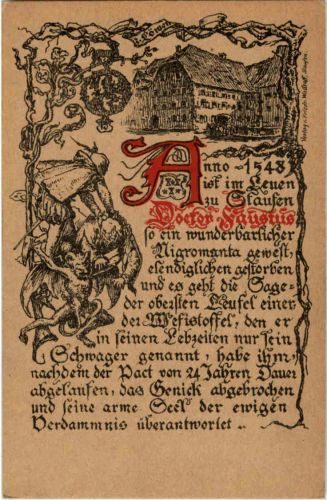 Anno 1548
ist im Leuen
zu Staufen
Doctor Faustus
so ein wunderbarlicher
Nigromanta gewest,
elendiglichen gestorben
und es geht die Sage
der obersten Teufel einer
der Mefistoffel, den er
in seinen Lebzeiten nur sein
Schwager genannt, habe ihm,
nachdem der Pact von 24 Jahren Dauer
abgelaufen, das Genick abgebrochen
und seine arme Seel der ewigen
Verdammnis überantwortet ..